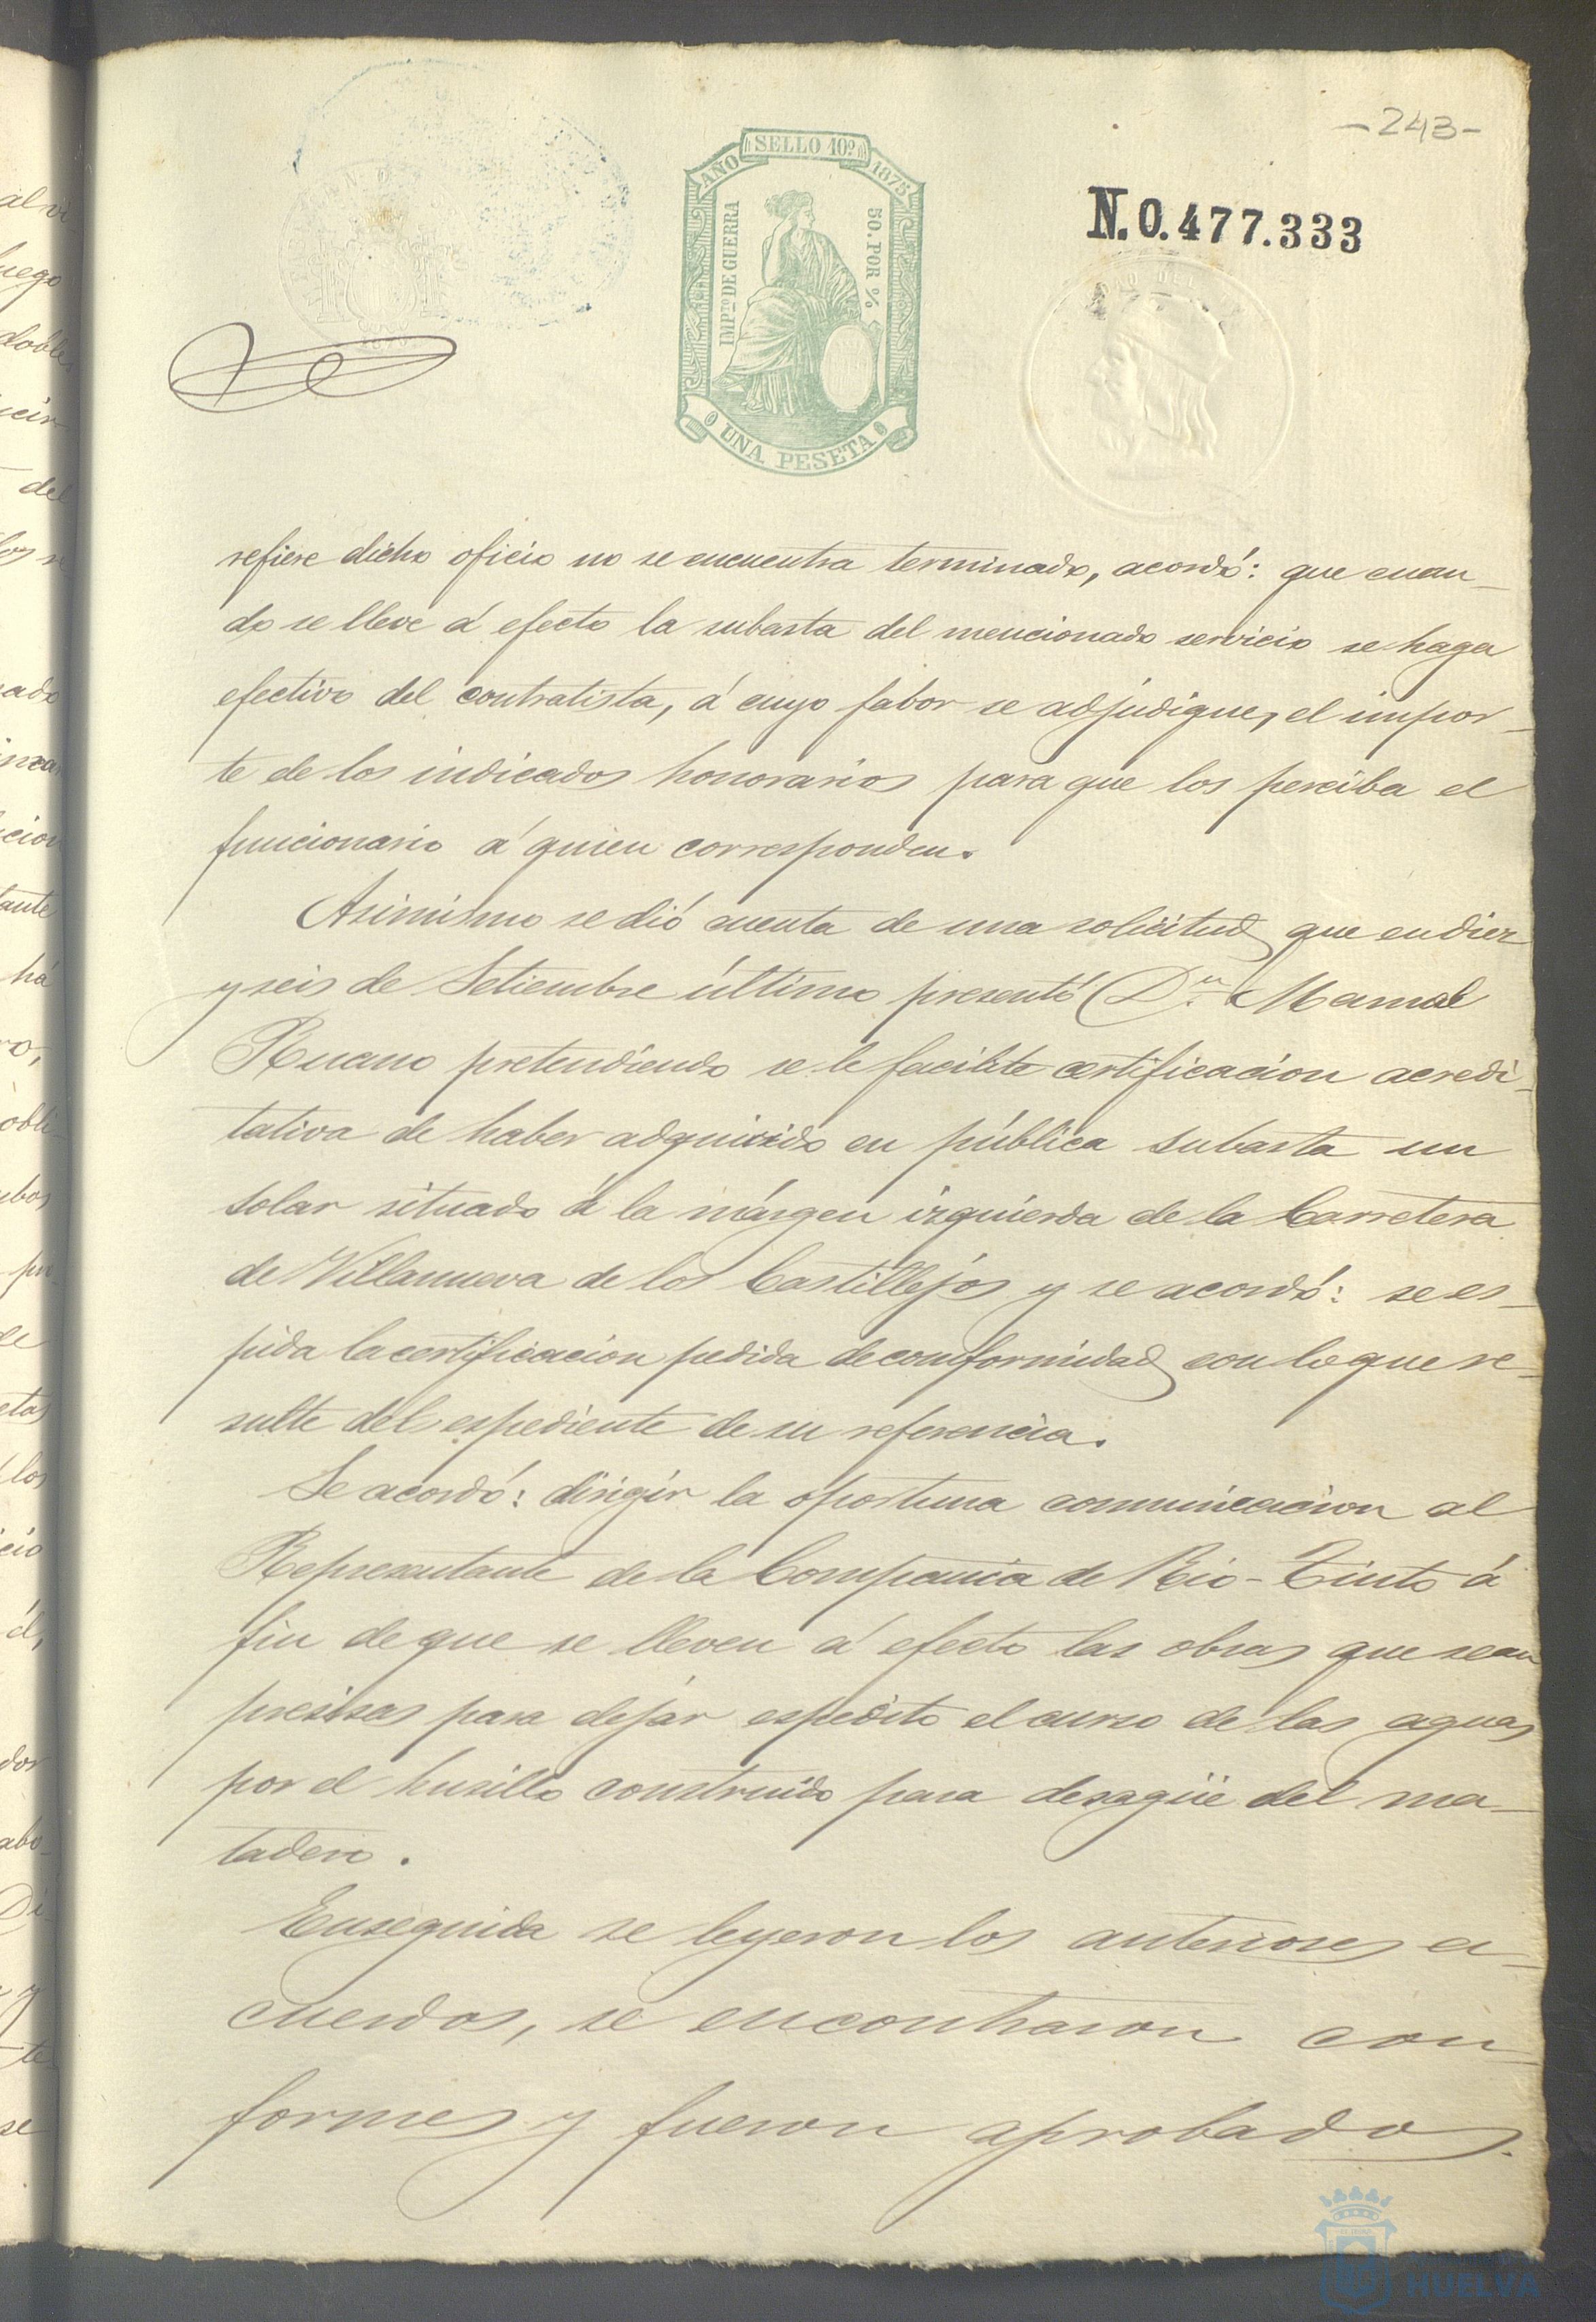 -243-
SELLO 10º
AÑO 1875
IMPTO DE GUERRA
50. POR %
UNA PESETA
N.0.477.333
refiere dicho oficio no se encuentra terminado, acordó: que cuan-
do se lleve á efecto la subasta del mencionado servicio se haga
efectivo del contratista, á cuyo fabor se adjudique, el impor-
te de los indicados honorarios para que los perciba el
funcionario á quien corresponden.
Asimismo se dió cuenta de una solicitud que en diez
y seis de Setiembre último presentó Dn. Manuel
Ruano pretendiendo se le facilite certificacion acredi-
tativa de haber adquirido en pública subasta un
solar situado á la márgen izquierda de la Carretera
de Villanueva de los Castillejos y se acordó: se es-
pida la certificacion pedida de conformidad con lo que re-
sulte del espediente de su referencia.
Se acordó: dirigir la oportuna comunicacion al
Representante de la Compañia de Rio-Tinto á
fin de que se lleven á efecto las obras que sean
precisas para dejar espedito el curso de las aguas
por el husillo construido para desagüe del ma-
tadero.
Enseguida se leyeron los anteriores a-
cuerdos, se encontraron con-
formes y fueron aprobados.
HUELVA